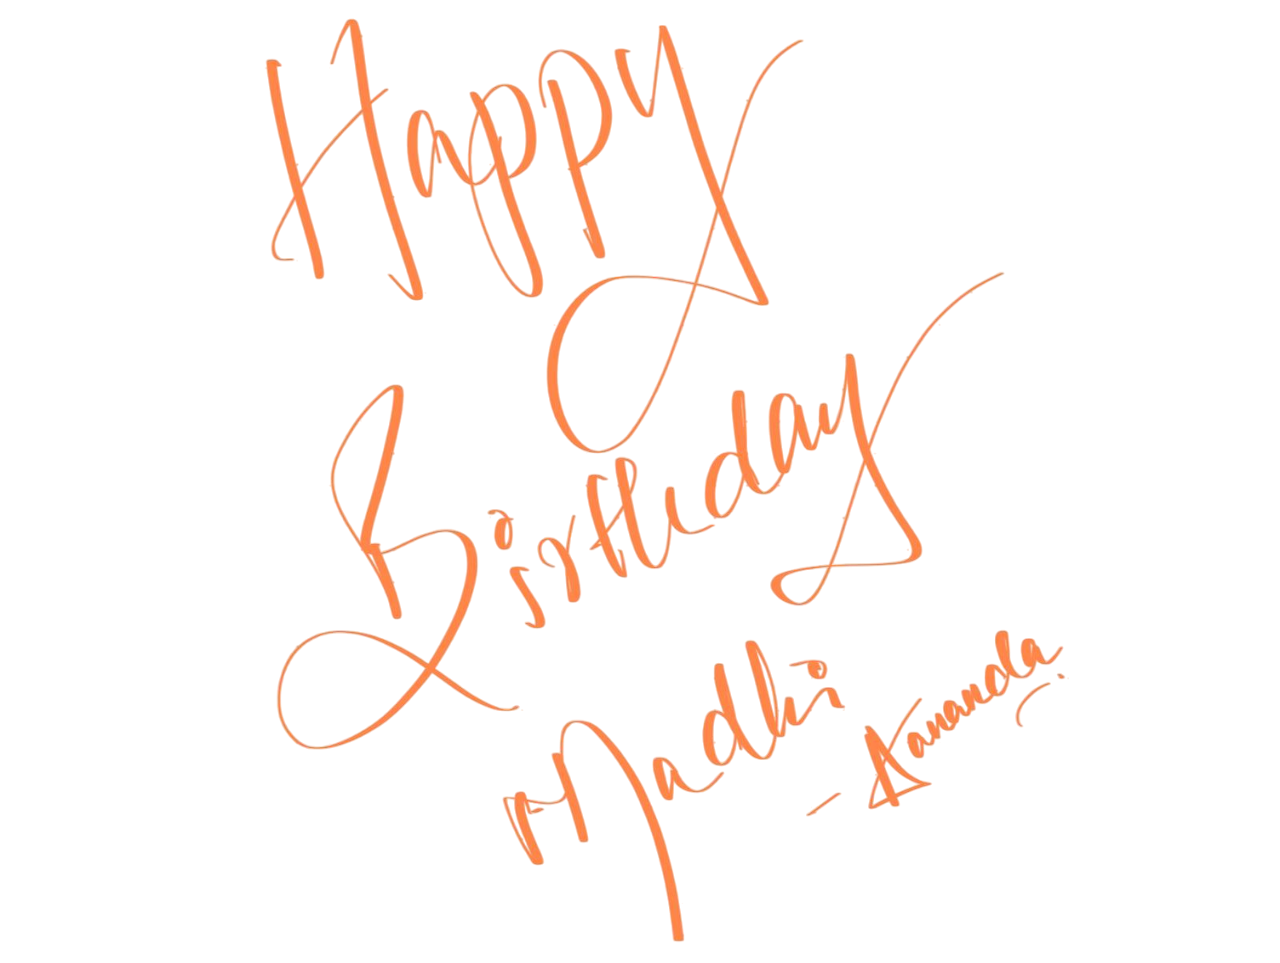 Happy
Birthday
Madhi
- Aananda.